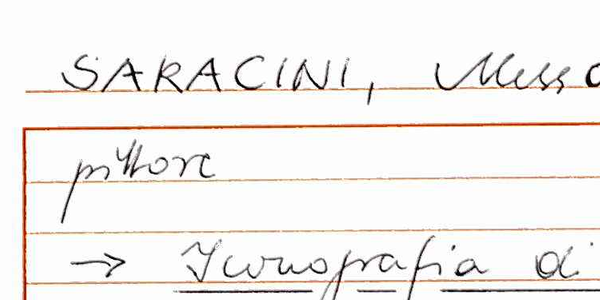 SARACINI,
pittore
→ Iconografia di